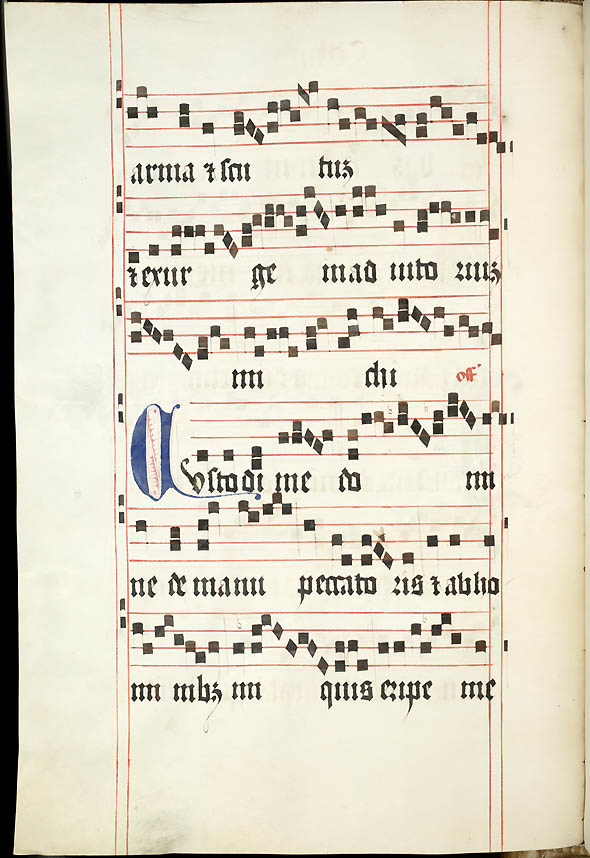 arma ⁊ scu tuꝫ
⁊ exur ge in ad iuto riuꝫ
mi chi off̄
Custodi me do mi
ne de manu peccato ris ⁊ ab ho
mi nibꝫ ini quis eripe me